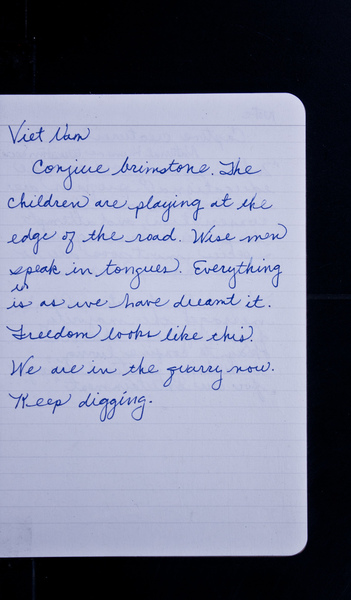 Viet Nam
Conjure brimstone. The
children are playing at the
edge of the road. Wise men
speak in tongues. Everything
is as we have dreamt it.
Freedom looks like this.
We are in the quarry now.
Keep digging.